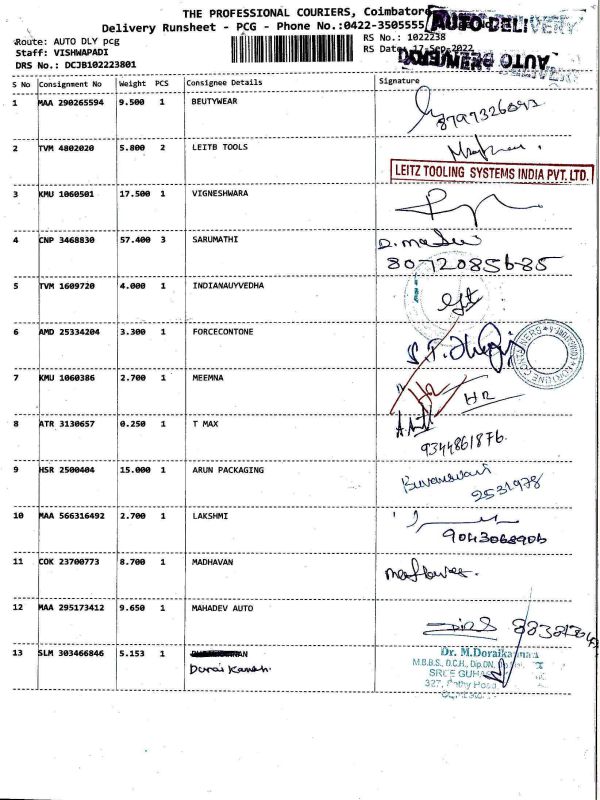 THE PROFESSIONAL COURIERS, Coimbatore
Delivery Runsheet - PCG - Phone No.:0422-3505555
AUTO DELIVERY
Route: AUTO DLY pcg
RS No.: 1022238
Staff: VISHWAPADI
RS Date: 17-Sep-2022
AUTO DELIVERY
DRS No.: DCJB102223801
S No Consignment No Weight PCS Consignee Details Signature
1 MAA 290265594 9.500 1 BEUTYWEAR
2 TVM 4802020 5.800 2 LEITB TOOLS
LEITZ TOOLING SYSTEMS INDIA PVT. LTD.
3 KMU 1060501 17.500 1 VIGNESHWARA
4 CNP 3468830 57.400 3 SARUMATHI
80-72085685
5 TVM 1609720 4.000 1 INDIANAUYVEDHA
6 AMD 25334204 3.300 1 FORCECONTONE
7 KMU 1060386 2.700 1 MEEMNA
HR HR
8 ATR 3130657 0.250 1 T MAX
9344861876.
9 HSR 2500404 15.000 1 ARUN PACKAGING
2531978
10 MAA 566316492 2.700 1 LAKSHMI
9043068906
11 COK 23700773 8.700 1 MADHAVAN
12 MAA 295173412 9.650 1 MAHADEV AUTO
13 SLM 303466846 5.153 1
Durai Kannan.
Dr. M.Doraikannan
M.B.B.S., D.C.H., Dip.DN.
SREE GUHAN
327,